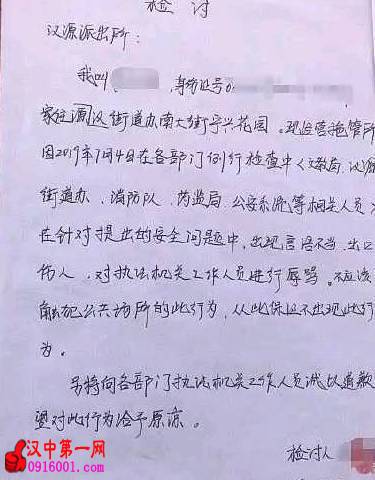 检讨
汉源派出所：
我叫，身份证号
家住汉街道办南大街宇兴花园。现经营拖管所
因2019年7月4日在各部门例行检查中（文教局、汉源
街道办、消防队、药监局、公安系统等相关人员
在针对提出的安全问题中，出现言语不当、出口
伤人，对执法机关工作人员进行辱骂。不应该
触犯公共场所的此行为，从此保证不出现此行
为。
另特向各部门执法机关工作人员诚以道歉
望对此行为给予原凉。
检讨人
汉中第一网
0916001.com